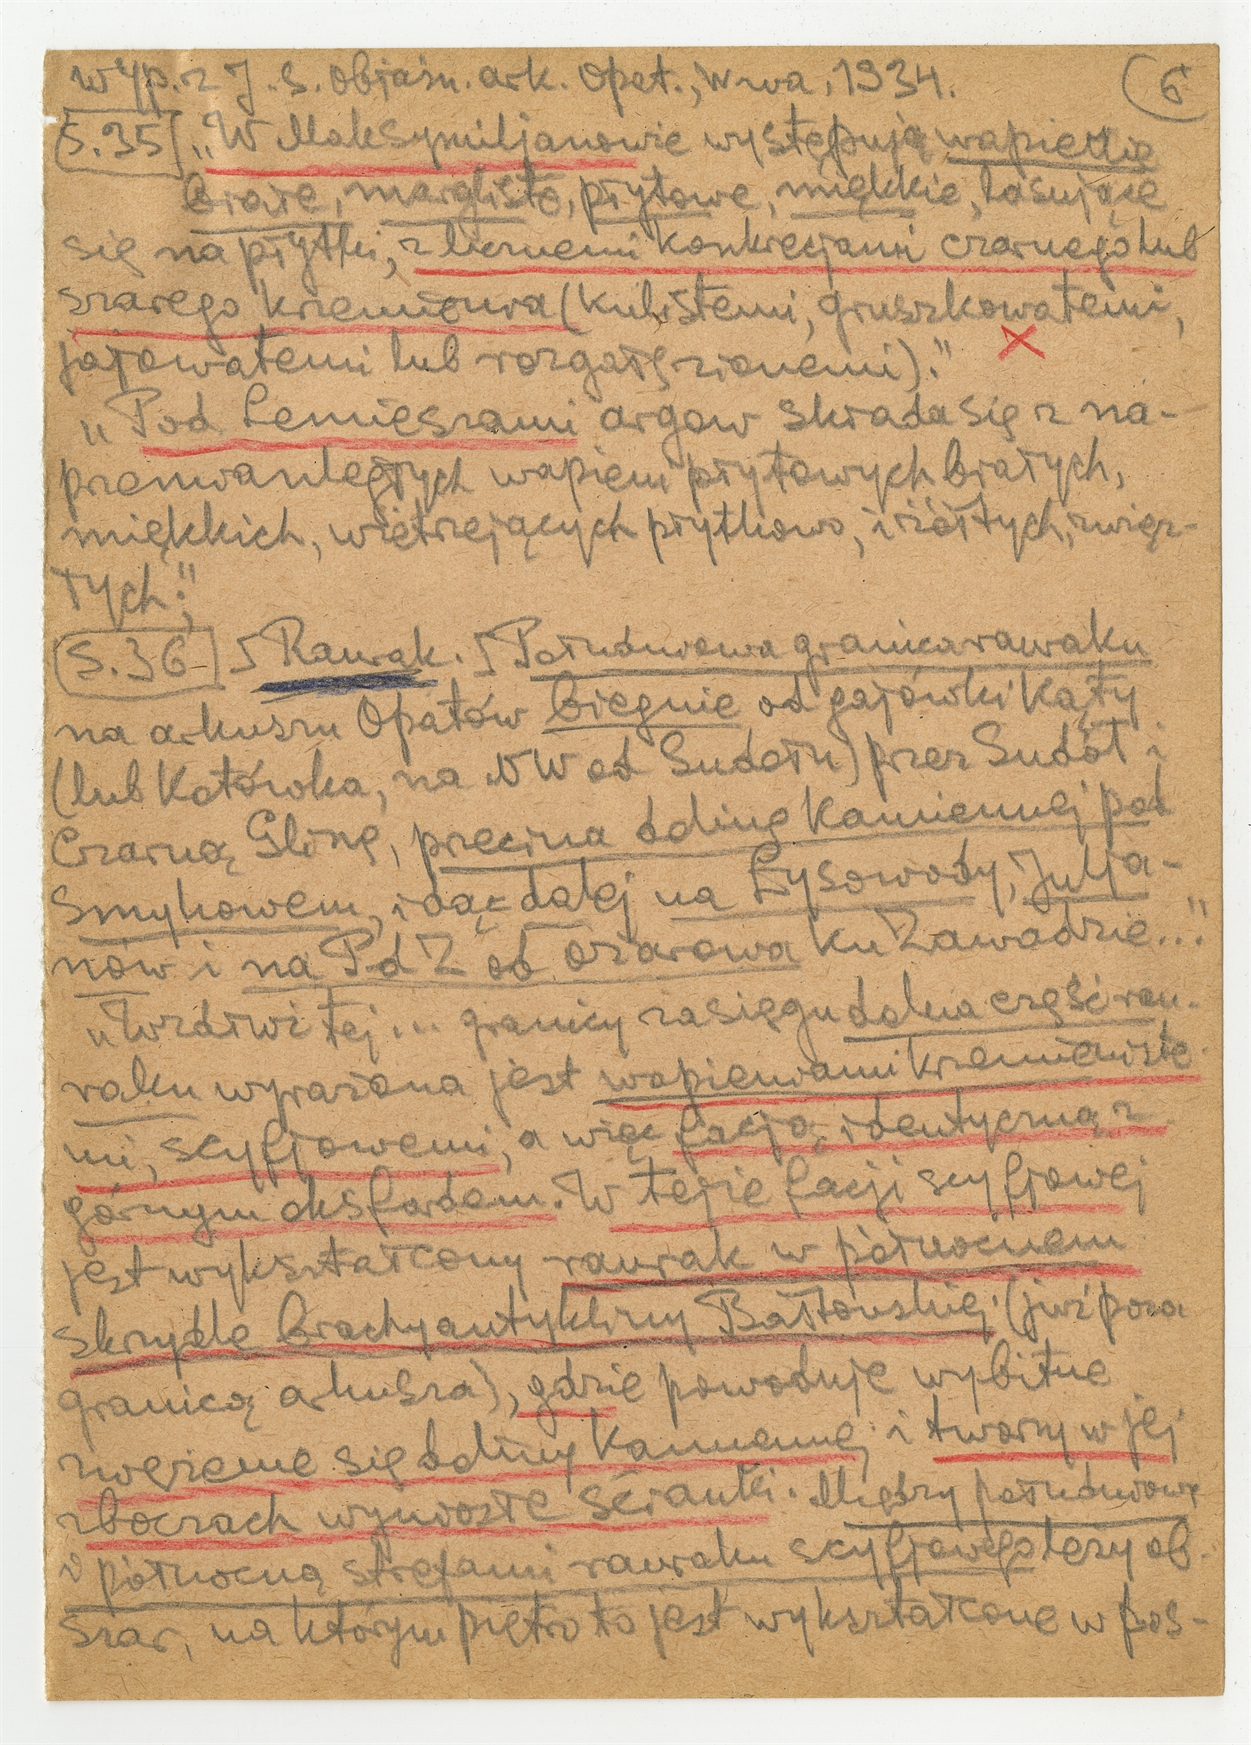 wyp. z J. S. objaśn. ark. Opat., W-wa, 1934. (6
[S.35] „W Maksymiljanowie występują wapienie
białe, margliste, płytowe, miękkie, lasujące
się na płytki, z licznemi konkrecjami czarnego lub
szarego krzemienia (kulistemi, gruszkowatemi,
jajowatemi lub rozgałęzionemi)."
„Pod Lemieszami argow składa się z na-
przemianległych wapieni płytowych białych,
miękkich, wietrzejących płytkowo, i żółtych, zwięz-
łych;"
[S.36] Raurak. Południowa granica rauraku
na arkuszu Opatów biegnie od gajówki Kąty
(lub Kotówka, na NW od Sudołu) przez Sudół i
Czarną Glinę, przecina dolinę Kamiennej pod
Smykowem, idąc dalej na Łysowody, Julja-
nów i na PdZ od Ożarowa ku Zawadzie..."
„Wzdłuż tej... granicy zasięgu dolna część rau-
raku wyrażona jest wapieniami krzemieniste-
mi, scyfjowemi, a więc facją identyczną z
górnym oksfordem. W tejże facji scyfjowej
jest wykształcony raurak w północnem
skrzydle brachyantykliny Bałtowskiej (już poza
granicą arkusza), gdzie powoduje wybitne
zwężenie się doliny Kamiennej i tworzy w jej
zboczach wyniosłe ścianki. Między południową
i północną strefami rauraku scyfjowego leży ob-
szar, na którym piętro to jest wykształcone w pos-